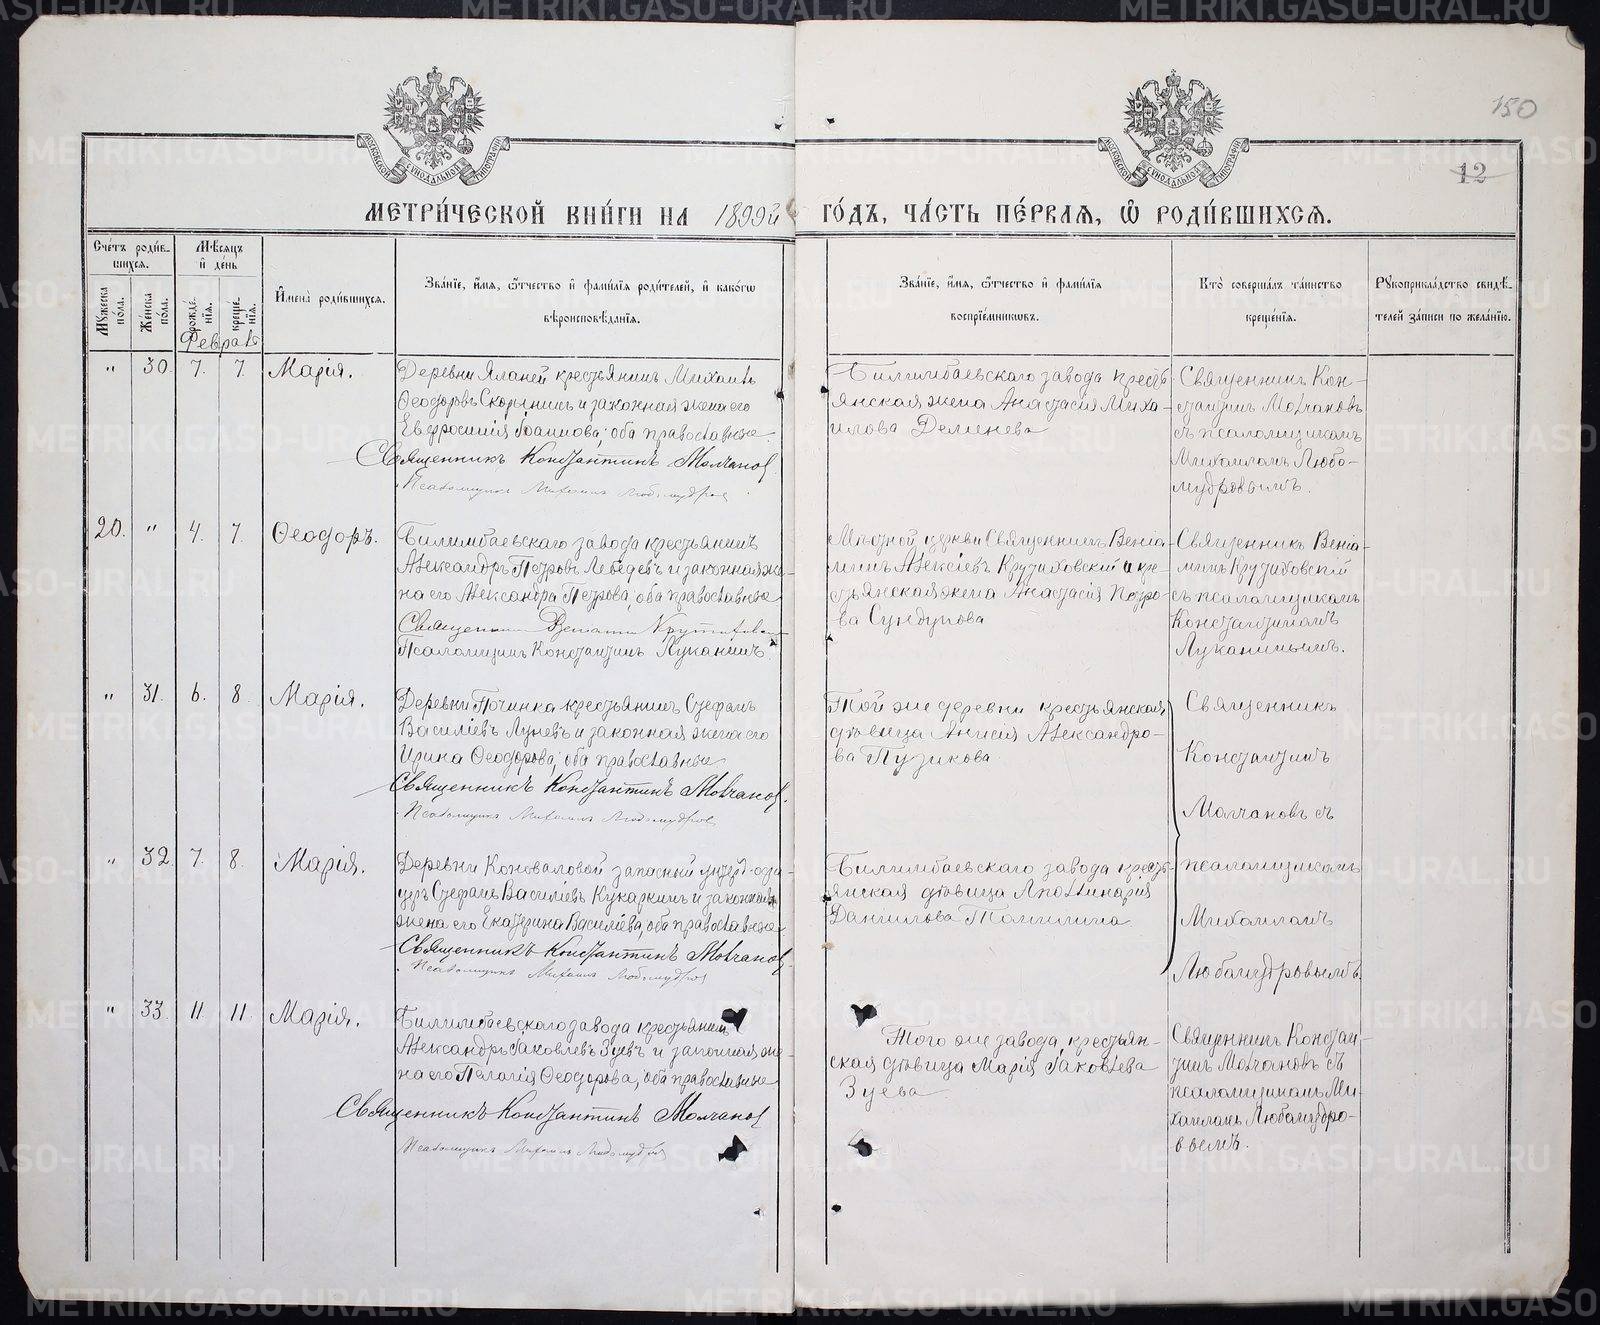 150
12
МОСКОВСКОЙ СѴНОДАЛЬНОЙ ТИПОГРАФІИ
МОСКОВСКОЙ СѴНОДАЛЬНОЙ ТИПОГРАФІИ
МЕТРИ́ЧЕСКОЙ КНИ́ГИ НА 1899й ГО́ДЪ, ЧА́СТЬ ПЕ́РВАЯ, Ѽ РОДИ́ВШИХСЯ.
Сче́тъ роди́в-
шихся.
Мꙋжеска по́ла.
Же́нска по́ла.
Мѣ́сяцъ
и҆ де́нь
рожде́-
нїѧ.
креще́-
нїѧ.
И҆мена̀ роди́вшихся.
Зва́нїе, и҆́мѧ, ѻ҆́тчество и҆ фами́лїѧ роди́телей, и҆ како́гѡ
вѣроисповѣ́данїѧ.
Зва́нїе, и҆́мѧ, ѻ҆́тчество и҆ фами́лїѧ
воспрїе́мникѡвъ.
Кто̀ соверша́лъ та́инство
креще́нїѧ.
Рꙋкоприкла́дство свидѣ́-
телей за́писи по жела́нїю.
Февраль
" 30. 7. 7. Марія.
Деревни Яланей крестьянинъ Михаилъ
Ѳеодоровъ Скорынинъ и законная жена его
Евфросинія Іоаннова, оба православные
Священникъ Константинъ Молчановъ
Псаломщикъ Михаилъ Любомудровъ
Билимбаевскаго завода кресть-
янская жена Анастасія Миха-
илова Деменева
Священникъ Кон-
стантинъ Молчановъ
съ псаломщикомъ
Михаиломъ Любо-
мудровымъ.
20. " 4. 7. Ѳеодоръ.
Билимбаевскаго завода крестьянинъ
Александръ Петровъ Лебедевъ и законная же-
на его Александра Петрова, оба православные
Священникъ Веніаминъ Крутиховскій
Псаломщикъ Константинъ Луканинъ
Мѣстной церкви Священникъ Веніа-
минъ Алексіевъ Крутиховский и кре-
стьянская жена Анастасія Петро-
ва Сундукова
Священникъ Веніа-
минъ Крутиховскій
съ псаломщикомъ
Константиномъ
Луканинымъ.
" 31. 6. 8. Марія.
Деревни Починка крестьянинъ Стефанъ
Василіевъ Луневъ и законная жена его
Ирина Ѳеодорова, оба православные
Священникъ Константинъ Молчановъ.
Псаломщикъ Михаилъ Любомудровъ
Той же деревни крестьянская
дѣвица Анисія Александро-
ва Пузикова
Священникъ
Константинъ
Молчановъ съ
псаломщикомъ
Михаиломъ
Любомудровымъ.
" 32. 7. 8. Марія.
Деревни Коноваловой запасный унтеръ-офи-
церъ Стефанъ Василіевъ Кукаркинъ и законная
жена его Екатерина Василіева, оба православные
Священникъ Константинъ Молчановъ
Псаломщикъ Михаилъ Любомудровъ
Билимбаевскаго завода кресть-
янская дѣвица Аполлинарія
Даніилова Томилина
" 33. 11. 11. Марія.
Билимбаевскаго завода крестьянинъ
Александръ Іаковлевъ Зуевъ и законная же-
на его Пелагія Ѳеодорова, оба православные
Священникъ Константинъ Молчановъ
Псаломщикъ Михаилъ Любомудровъ
Того же завода крестьян-
ская дѣвица Марія Іаковлева
Зуева
Священникъ Констан-
тинъ Молчановъ съ
псаломщикомъ Ми-
хаиломъ Любомудро-
вымъ.
METRIKI.GASO-URAL.RU